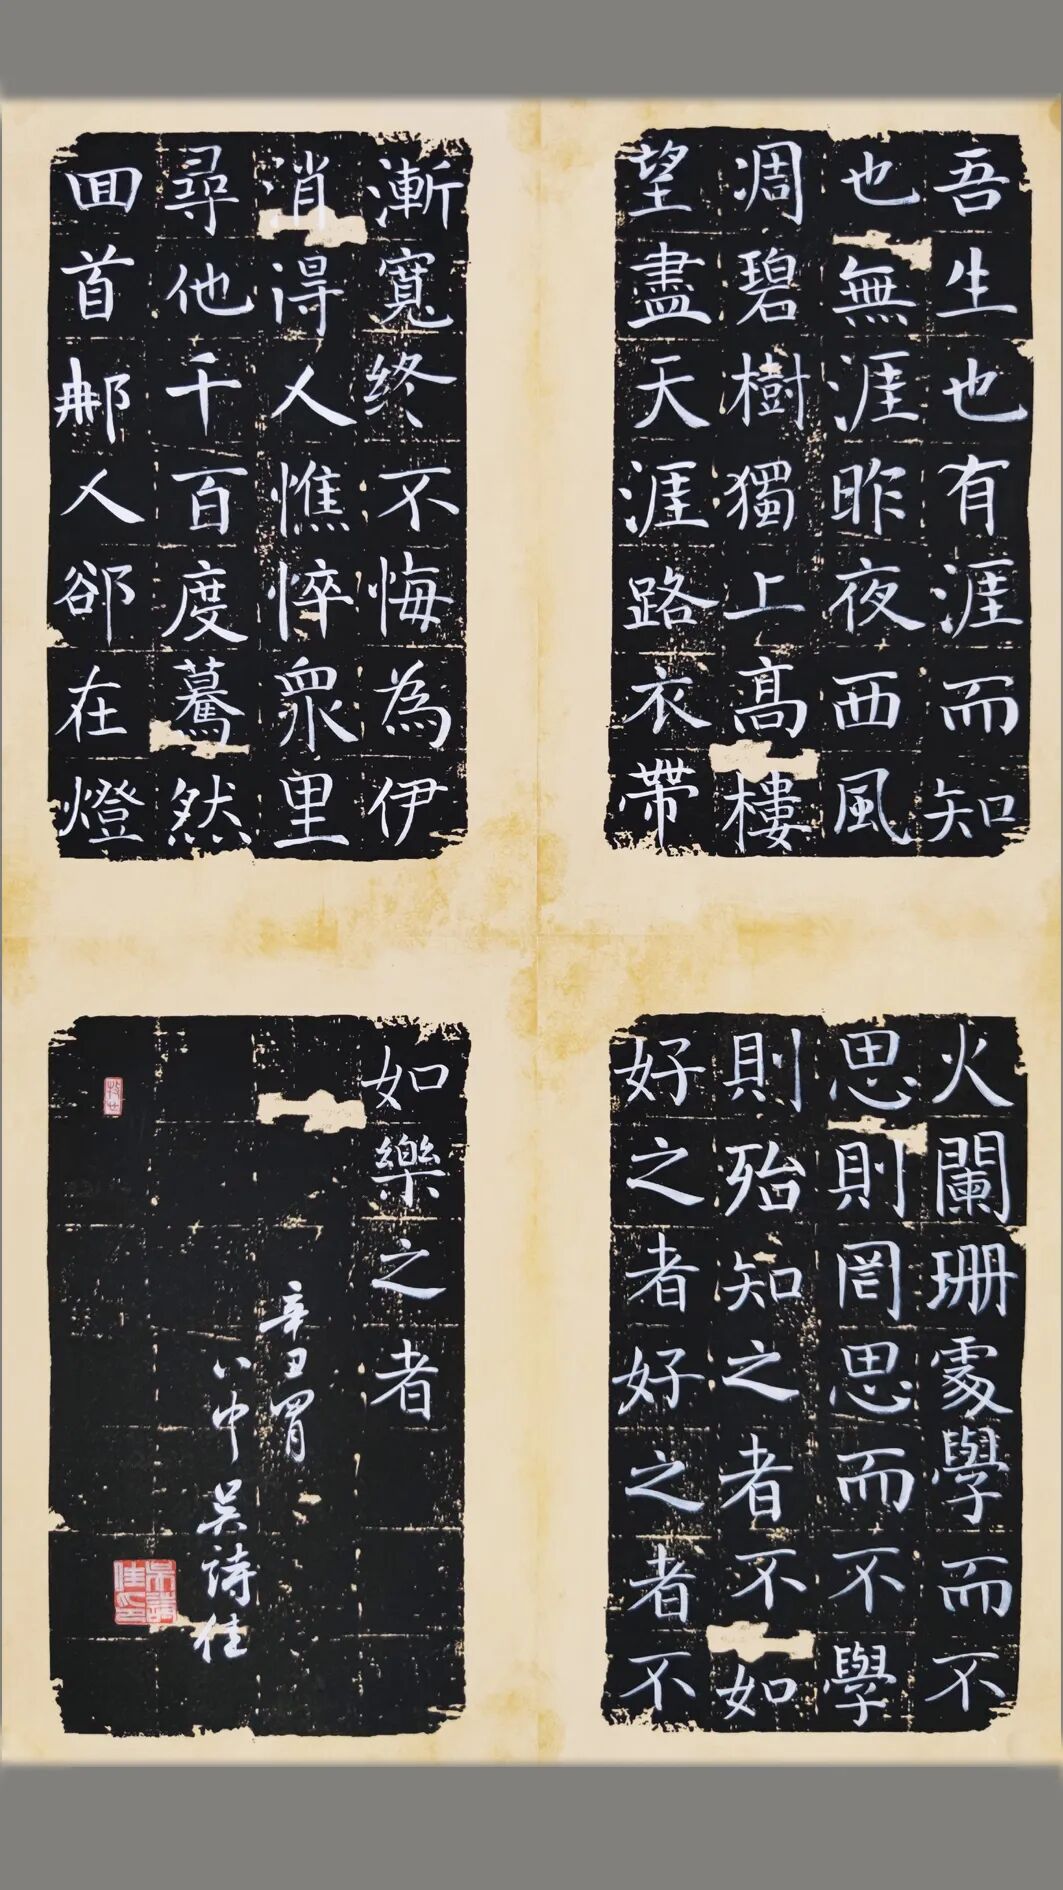 吾生也有涯而知
也無涯昨夜西風
凋碧樹獨上高樓
望盡天涯路衣帶
漸寬终不悔為伊
消得人憔悴眾里
尋他千百度驀然
回首那人郤在燈
火闌珊處學而不
思則罔思而不學
則殆知之者不如
好之者好之者不
如樂之者
辛丑胃
八中吴詩佳
吴詩佳印